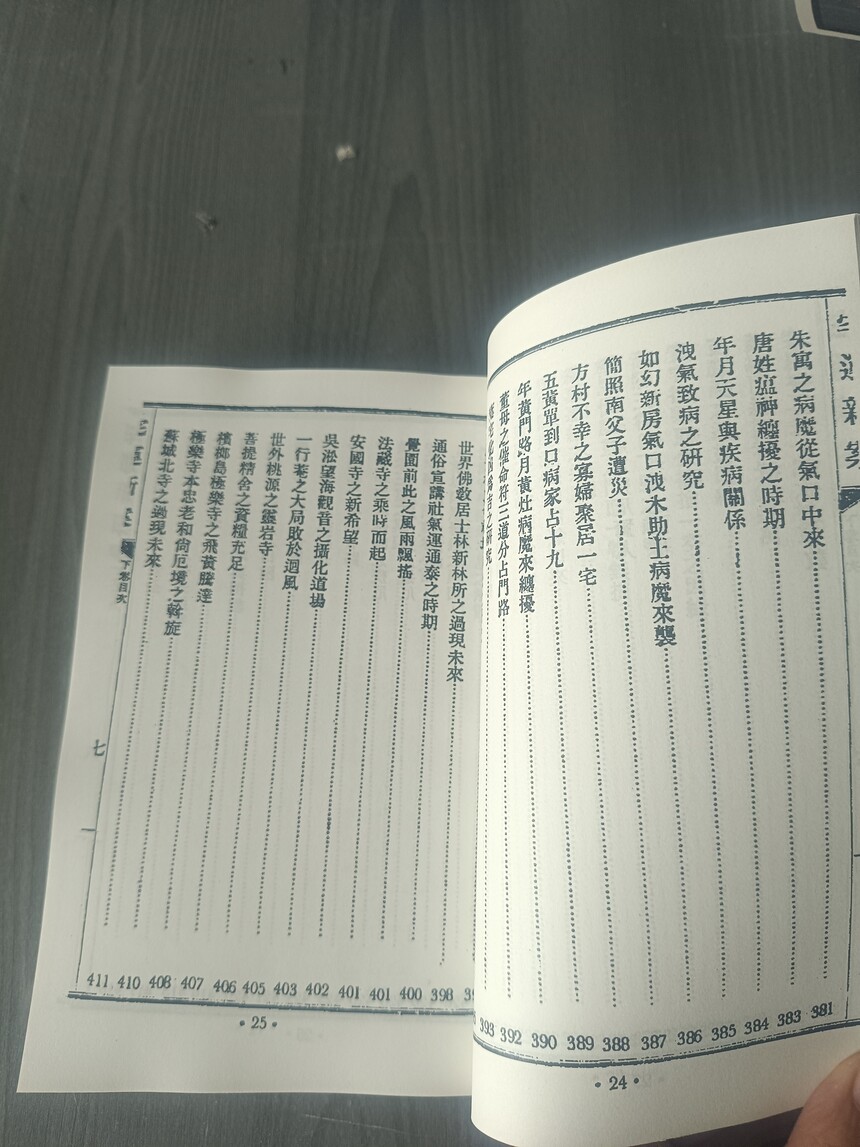 宅運新案
朱寓之病魔從氣口中來 381
唐姓瘟神纏擾之時期 383
年月天星與疾病關係 384
洩氣致病之研究 385
如幻新房氣口洩木助土病魔來襲 386
簡照南父子遭災 387
方村不幸之寡婦聚居一宅 388
五黃單到口病家占十九 389
年黃門路月黃灶病魔來纏擾 390
董母之催命符三道分占門路 392
之研究 393
·24·
世界佛教居士林新林所之過現未來 398
通俗宣講社氣運通泰之時期 400
覺園前此之風雨飄搖 401
法藏寺之乘時而起 401
安國寺之新希望 402
吳淞望海觀音之攝化道場 403
一行菴之大局敗於迴風 405
世外桃源之靈岩寺 406
菩提精舍之資糧充足 407
檳榔島極樂寺之飛黃騰達 408
極樂寺本忠老和尚厄境之斡旋 410
蘇城北寺之過現未來 411
宅運新案 下卷目次 七
·25·